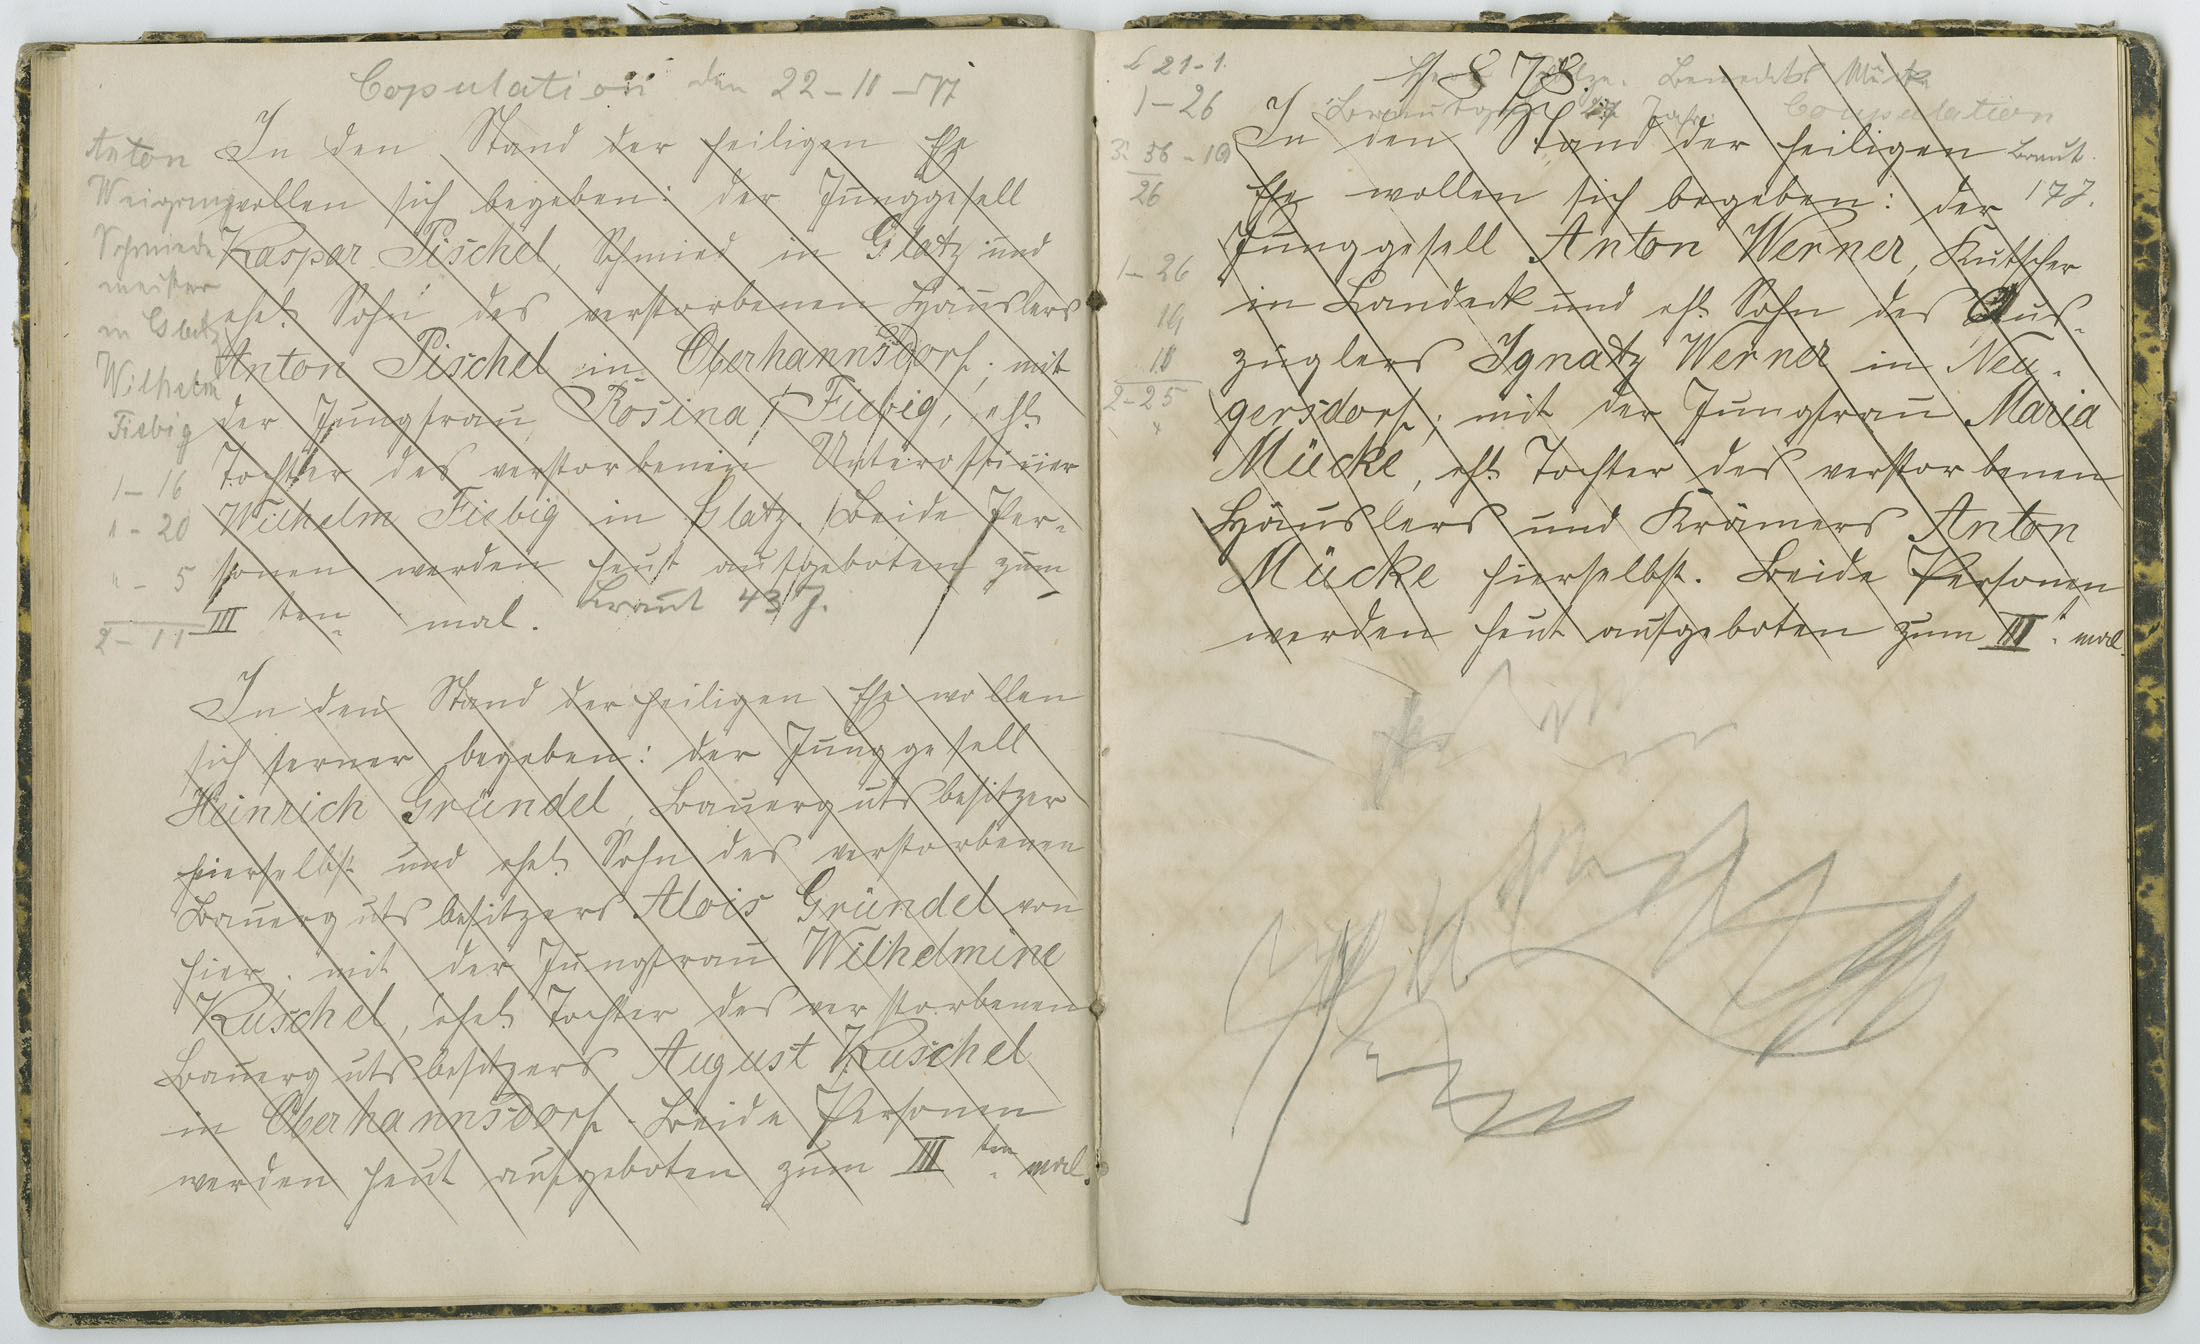 Copulation den 22-11-77
Anton
Weigang
Schmiede
meister
in Glatz
Wilhelm
Fiebig
1-16
1-20
"-5
2-11
In den Stand der heiligen Ehe
wollen sich begeben: der Junggesell
Kaspar Pischel, Schmied in Glatz und
ehel. Sohn des verstorbenen Häuslers
Anton Pischel in Oberhannsdorf; mit
der Jungfrau Rosina Fiebig, ehl.
Tochter des verstorbenen Unteroffizier
Wilhelm Fiebig in Glatz. Beide Per-
sonen werden heut aufgeboten zum
III ten mal. Braut 43 J.
In den Stand der heiligen Ehe wollen
sich ferner begeben: der Junggesell
Heinrich Gründel, Bauergutsbesitzer
hierselbst und ehel. Sohn des verstorbenen
Bauergutsbesitzers Alois Gründel von
hier; mit der Jungfrau Wilhelmine
Kuschel, ehel. Tochter des verstorbenen
Bauergutsbesitzers August Kuschel
in Oberhannsdorf. Beide Personen
werden heut aufgeboten zum III ten mal.
21-1.
1-26
56-19
26
1-26
19
18
2-25
1878.
Benedikts Mücke
Bräutigam 27 Jahr. Compulation
Braut
17 J.
In den Stand der heiligen
Ehe wollen sich begeben: der
Junggesell Anton Werner, Kutscher
in Landeck und ehl. Sohn des Aus-
züglers Ignatz Werner in Neu-
gersdorf; mit der Jungfrau Maria
Mücke, ehl. Tochter des verstorbenen
Häuslers und Krämers Anton
Mücke hierselbst. Beide Personen
werden heut aufgeboten zum III t. mal.